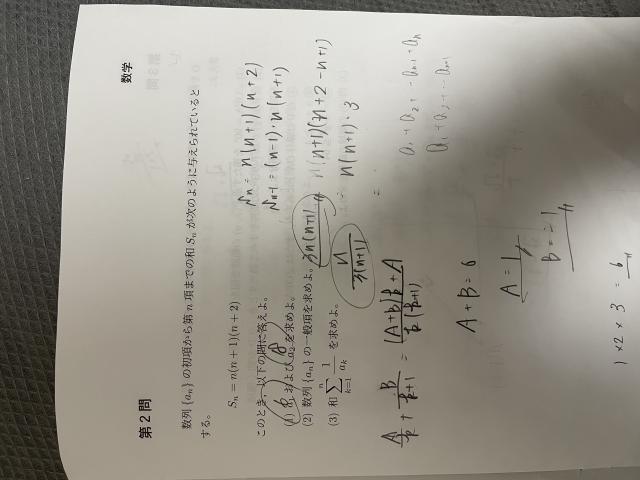 数学
第2問
数列 {a_n} の初項から第 n 項までの和 S_n が次のように与えられていると
する。
S_n = n(n+1)(n+2)
このとき、以下の問に答えよ。
(1) a_1 および a_2 を求めよ。
6
(2) 数列 {a_n} の一般項を求めよ。
3n(n+1)
(3) 和 \sum_{k=1}^{n} \frac{1}{a_k} を求めよ。
\frac{n}{3(n+1)}
S_n = n(n+1)(n+2)
S_{n-1} = (n-1)·n(n+1)
n(n+1)(n+2-n+1)
n(n+1)·3
=
\frac{A}{k} + \frac{B}{k+1} = \frac{(A+B)k+A}{k(k+1)}
A+B=0
A=1
B=-1
1×2×3=6